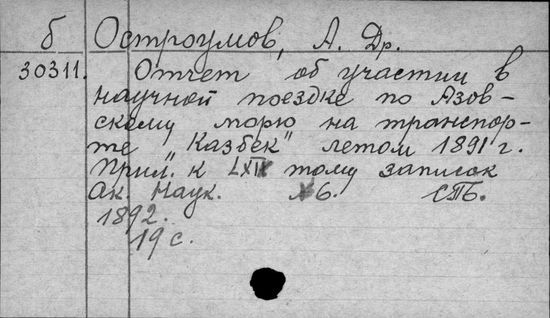 б Остроумов, А. Др.
30311. Отчет об участии в
научной поездке по Азов-
скому морю на транспор-
те „Казбек" летом 1891 г.
Прил. к LXIX тому записок
Ак. Наук. №6. СПБ.
1892.
19 с.